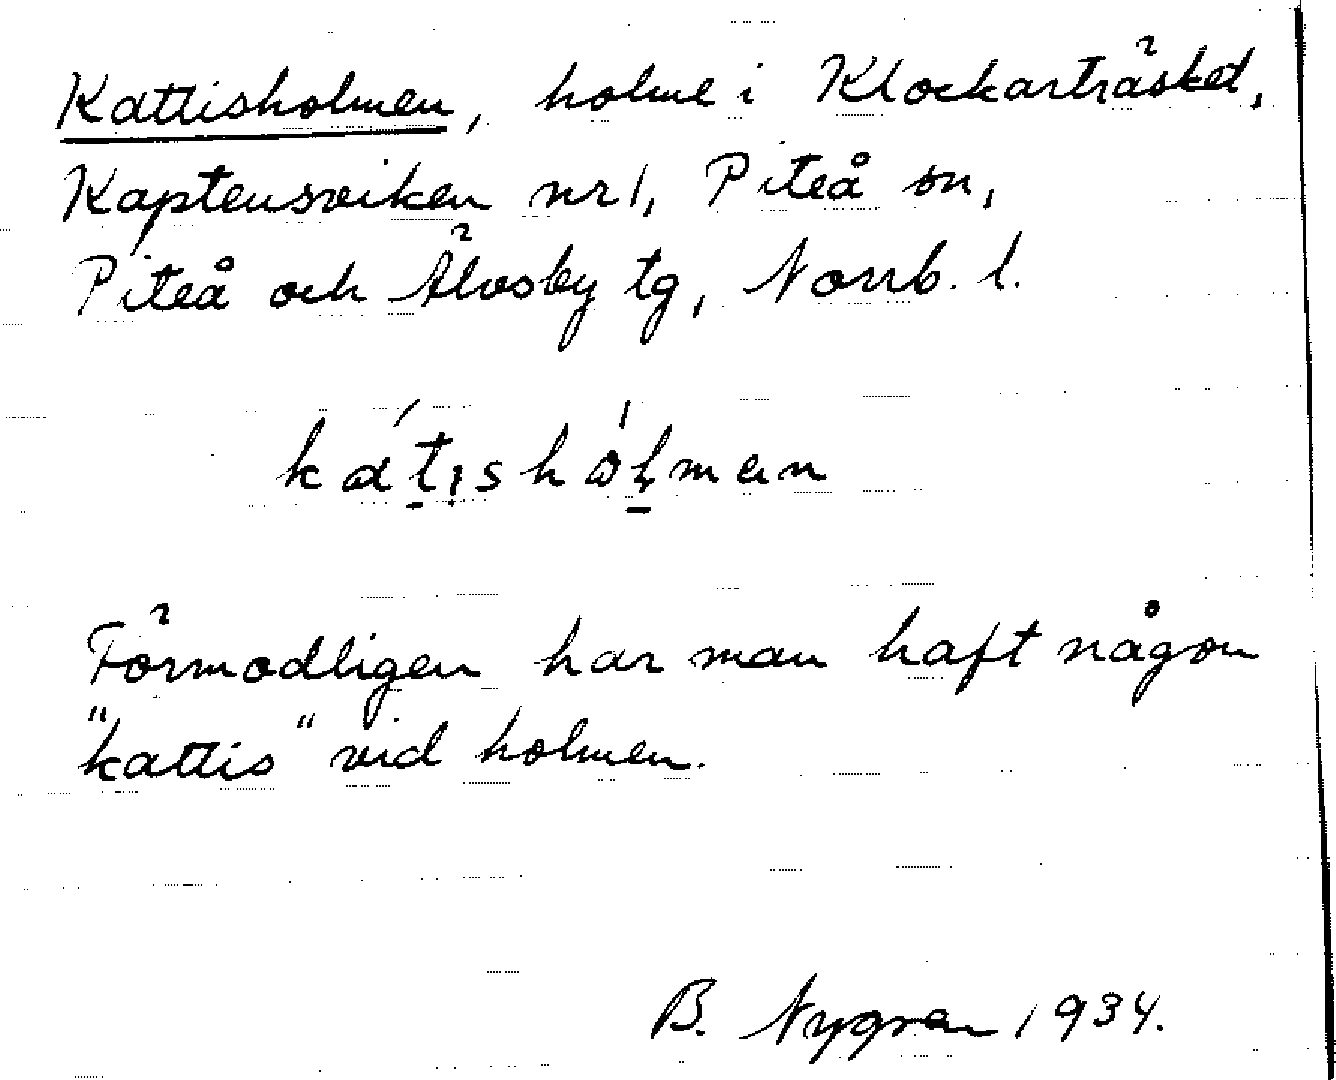 Kattisholmen, holme i Klockarträsket,
Kaptensviken nr 1, Piteå sn,
Piteå och Älvsby tg, Norrb. l.
kát̠ı̣shó̀ḷ̠mɐn
Förmodligen har man haft någon
"kattis" vid holmen.
B. Nygren 1934.